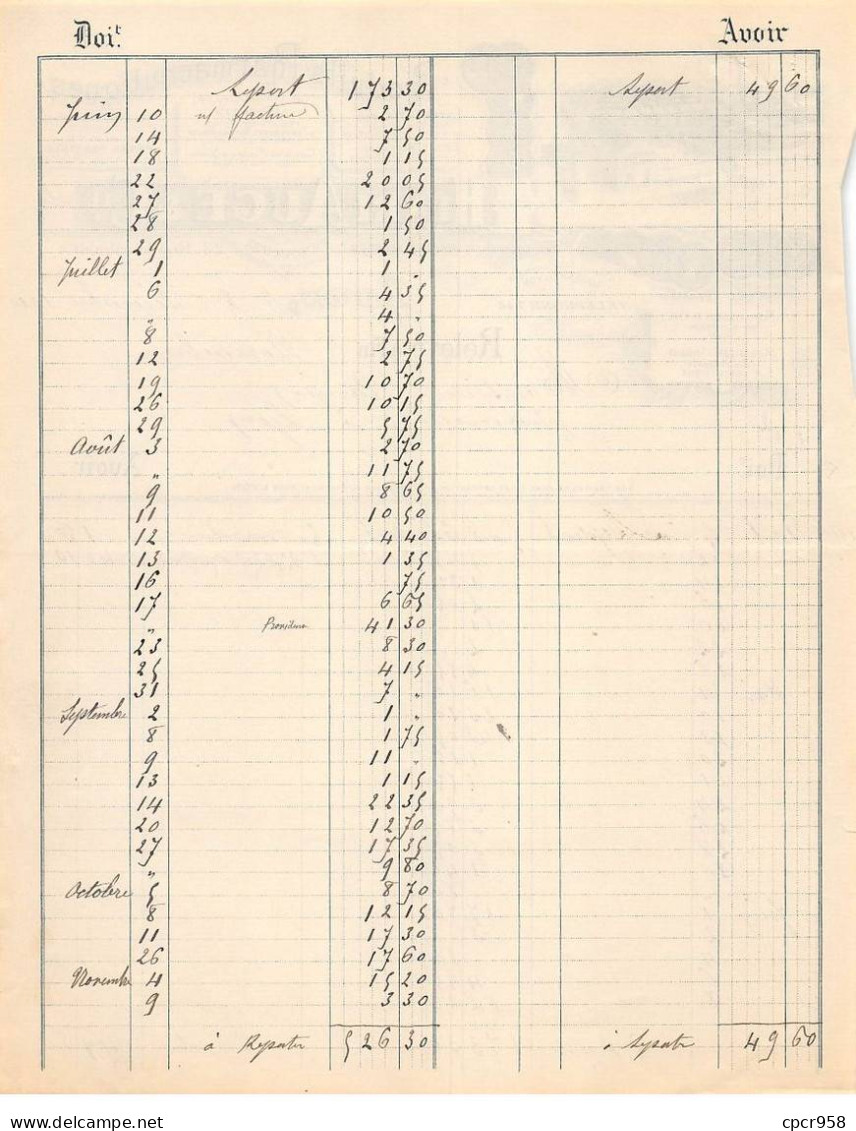 Doit. Avoir
Report 173 30 Report 49 60
Juin 10 s/ facture 2 70
14 7 50
18 1 15
22 20 05
27 12 60
28 1 50
29 2 45
Juillet 1 1 "
6 4 35
" 4 "
8 7 50
12 2 75
19 10 70
26 10 15
29 5 75
Août 3 2 70
" 11 75
9 8 65
11 10 50
12 4 40
13 1 35
16 75
17 6 65
" 41 30
23 8 30
25 4 15
31 7 "
Septembre 2 1 "
8 1 75
9 11 "
13 1 15
14 22 35
20 12 70
27 17 35
" 9 80
Octobre 5 8 70
8 12 15
11 17 30
26 17 60
Novembre 4 15 20
9 3 30
à Reporter 526 30 à Reporter 49 60
cpcr958